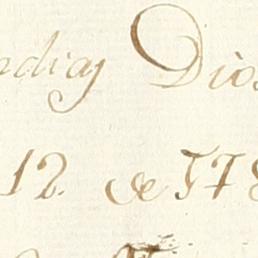 ndiaj Dios
12. de 178